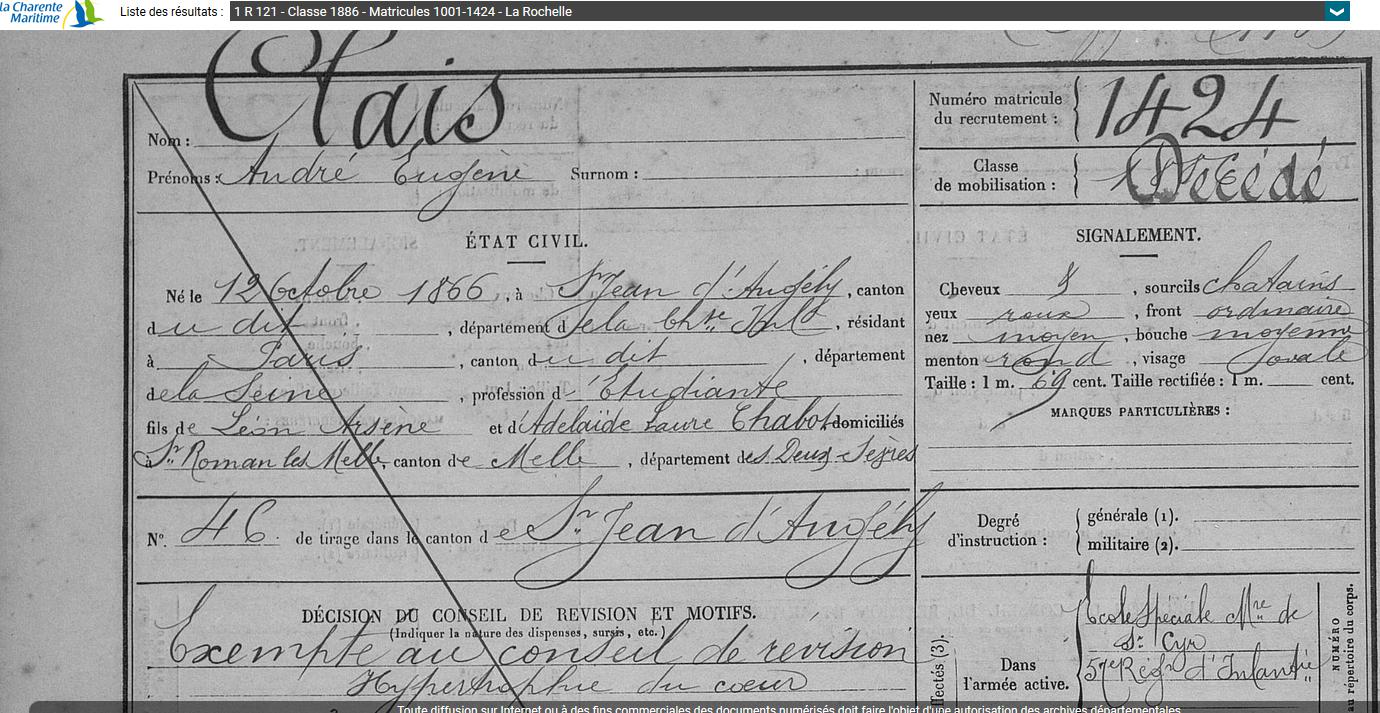 la Charente
Maritime
Liste des résultats : 1 R 121 - Classe 1886 - Matricules 1001-1424 - La Rochelle
Nom : Clais
Prénoms : André Eugène Surnom :
Numéro matricule du recrutement : 1424
Classe de mobilisation : Décédé
ÉTAT CIVIL.
Né le 12 Octobre 1866, à St Jean d'Angély, canton
du dit, département de la Chte Infre, résidant
à Paris, canton du dit, département
de la Seine, profession d'Etudiante
fils de Léon Arsène et d'Adelaïde Laure Chabot domiciliés
à St Roman les Melle, canton de Melle, département des Deux-Sèvres
SIGNALEMENT.
Cheveux &, sourcils chatains
yeux roux, front ordinaire
nez moyen, bouche moyenne
menton rond, visage ovale
Taille : 1 m. 69 cent. Taille rectifiée : 1 m. cent.
MARQUES PARTICULIÈRES :
N°. 46. de tirage dans le canton de St Jean d'Angély
Degré d'instruction : générale (1).
militaire (2).
DÉCISION DU CONSEIL DE REVISION ET MOTIFS.
(Indiquer la nature des dispenses, sursis, etc.)
Exempte au conseil de révision
Hypertrophie du cœur
ffectés (3).
Dans l'armée active.
Ecole Spéciale Mre de
St Cyr
57e Régt d'Infantie
NUMÉRO
au répertoire du corps.
Toute diffusion sur Internet ou à des fins commerciales des documents numérisés doit faire l'objet d'une autorisation des archives départementales